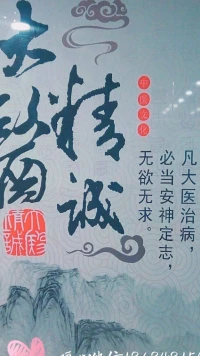 大医
精诚
中医文化
凡大医治病，
必当安神定志，
无欲无求。